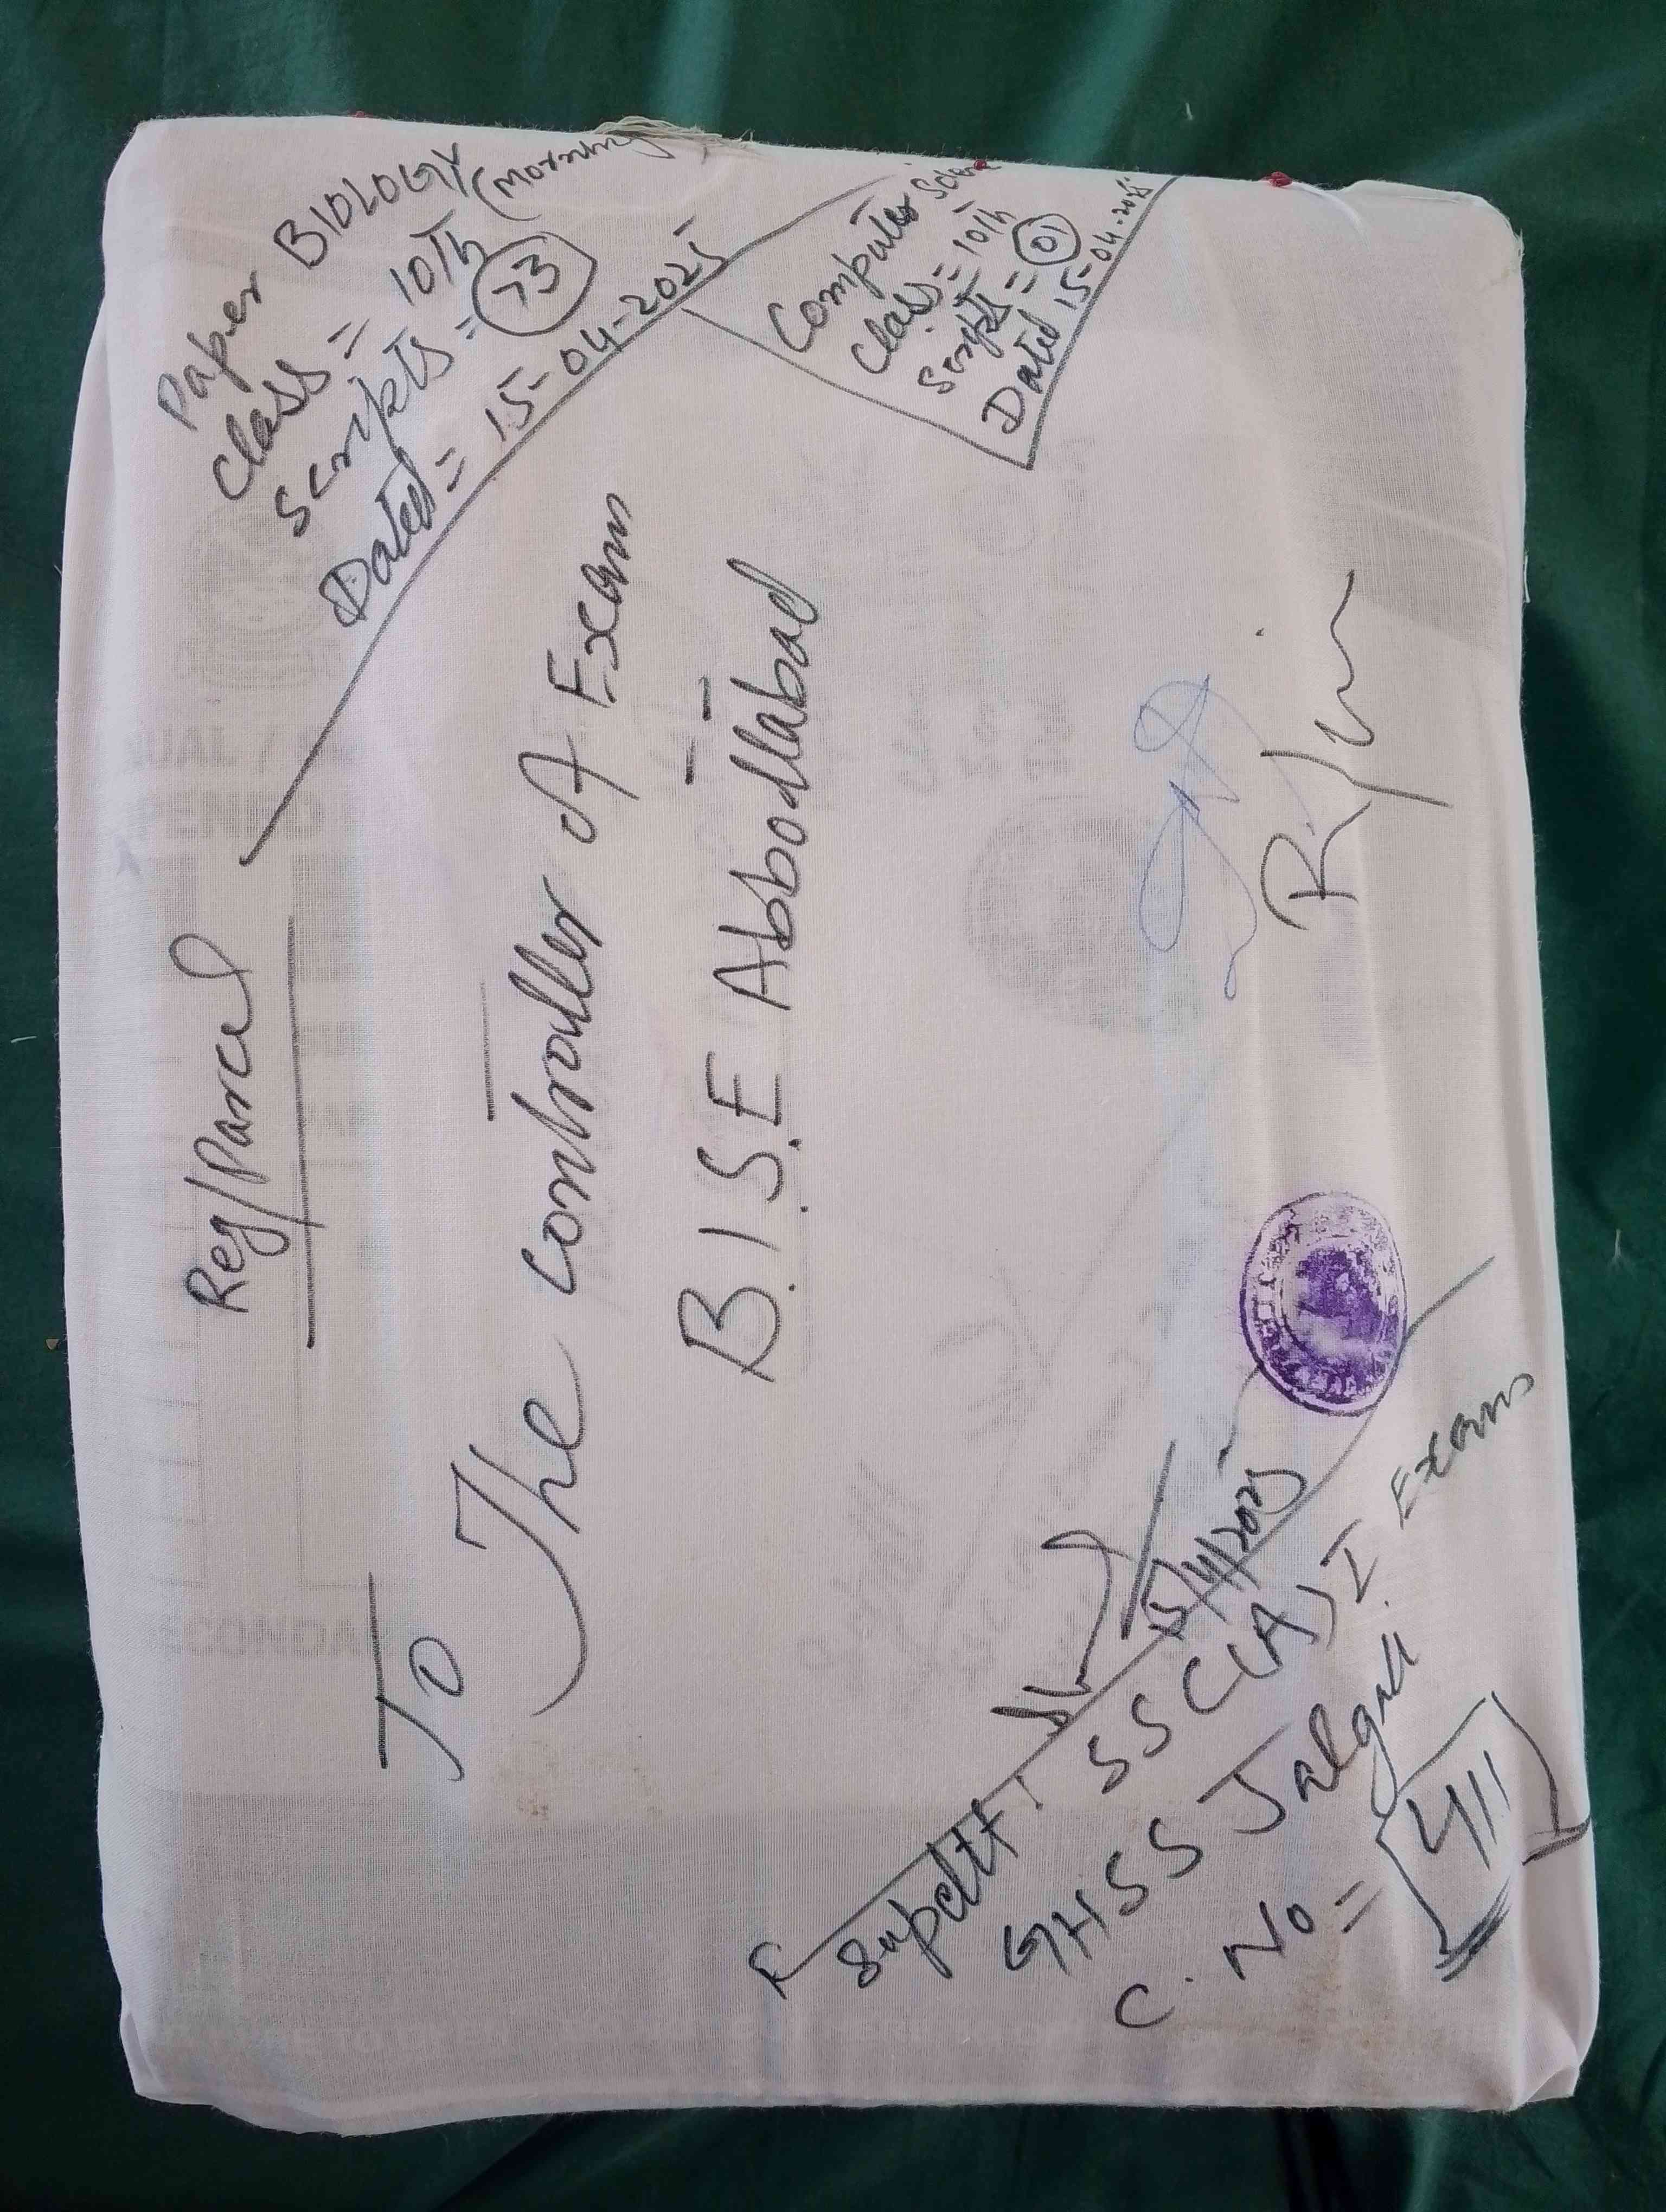 Reg/Parcel
Paper BIOLOGY (Morning
Class = 10Th
Scripts = 73
Dated = 15-04-2025
Computer Science
Class = 10Th
Scripts = 01
Dated 15-04-2025
To
The Controller of Exam
B.I.S.E Abbodlabad
15/4/2025
F
Supdtt SSC(A) I Exam
GHSS Jalgali
C. No = 411